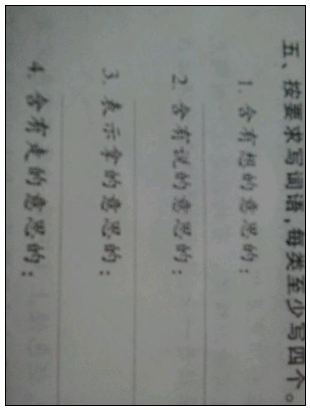 五、按要求写词语,每类至少写四个。
1. 含有想的意思的:
2. 含有说的意思的:
3. 表示拿的意思的:
4. 含有走的意思的: